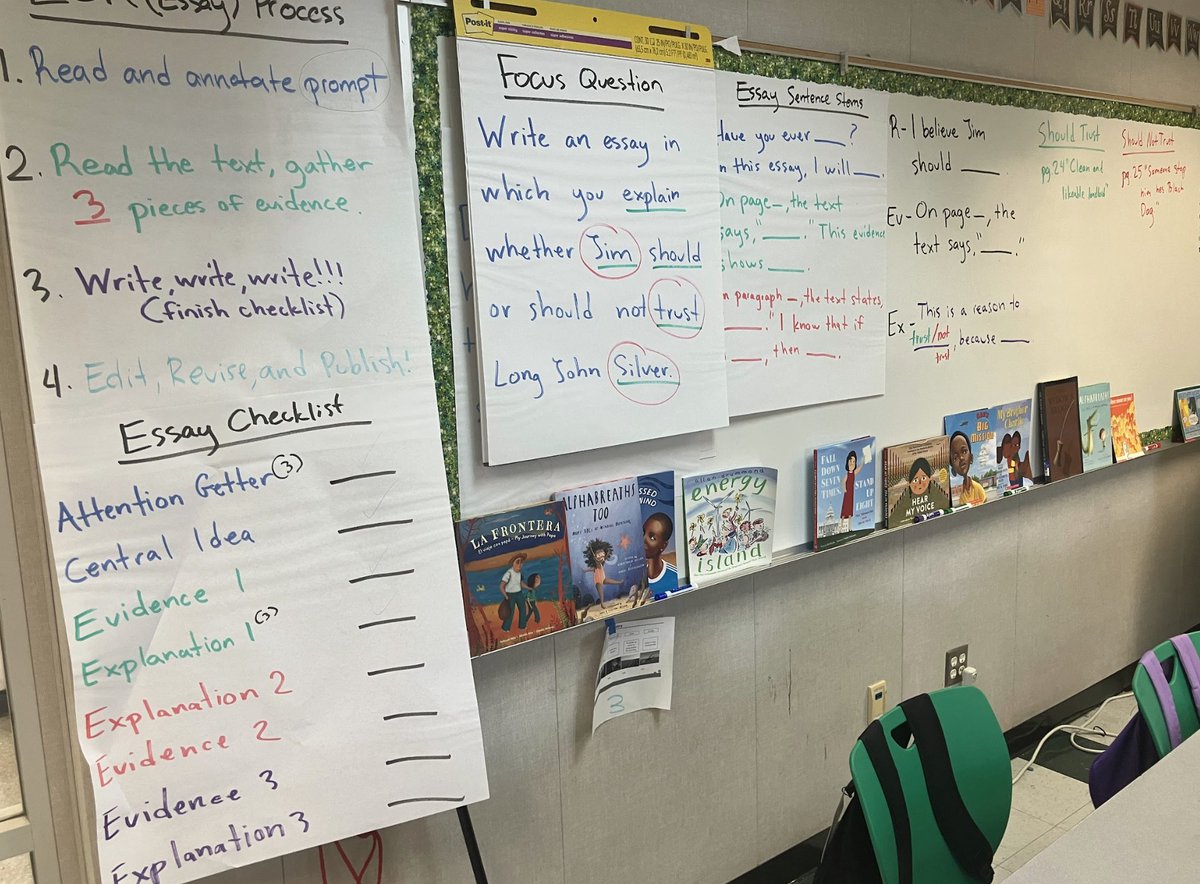 (Essay) Process
1. Read and annotate prompt
2. Read the text, gather
3 pieces of evidence.
3. Write, write, write!!!
(finish checklist)
4. Edit, Revise, and Publish!
Essay Checklist
Attention Getter (3)
Central Idea
Evidence 1
Explanation 1 (3)
Explanation 2
Evidence 2
Evidence 3
Explanation 3
Post-it
Focus Question
Write an essay in
which you explain
whether Jim should
or should not trust
Long John Silver.
Essay Sentence Stems
Have you ever ___?
In this essay, I will ___.
On page _, the text
says, "___." This evidence
shows ___.
paragraph _, the text states,
___." I know that if
___, then ___.
R- I believe Jim
should ___
Ev- On page _, the
text says, "___."
Ex- This is a reason to
trust/not
trust, because ___
Should Trust
pg. 24 "Clean and
likeable landlord"
Should Not Trust
pg. 25 "Someone stop
him hes Black
Dog."
LA FRONTERA
El viaje con papá ~ My Journey with Papa
ALPHABREATHS
TOO
energy
island
FALL
DOWN
SEVEN
TIMES,
STAND
UP
EIGHT
HEAR
MY VOICE
BIG
MISSION
ALPHABREATHS
3
Rr
Ss
Tt
Uu